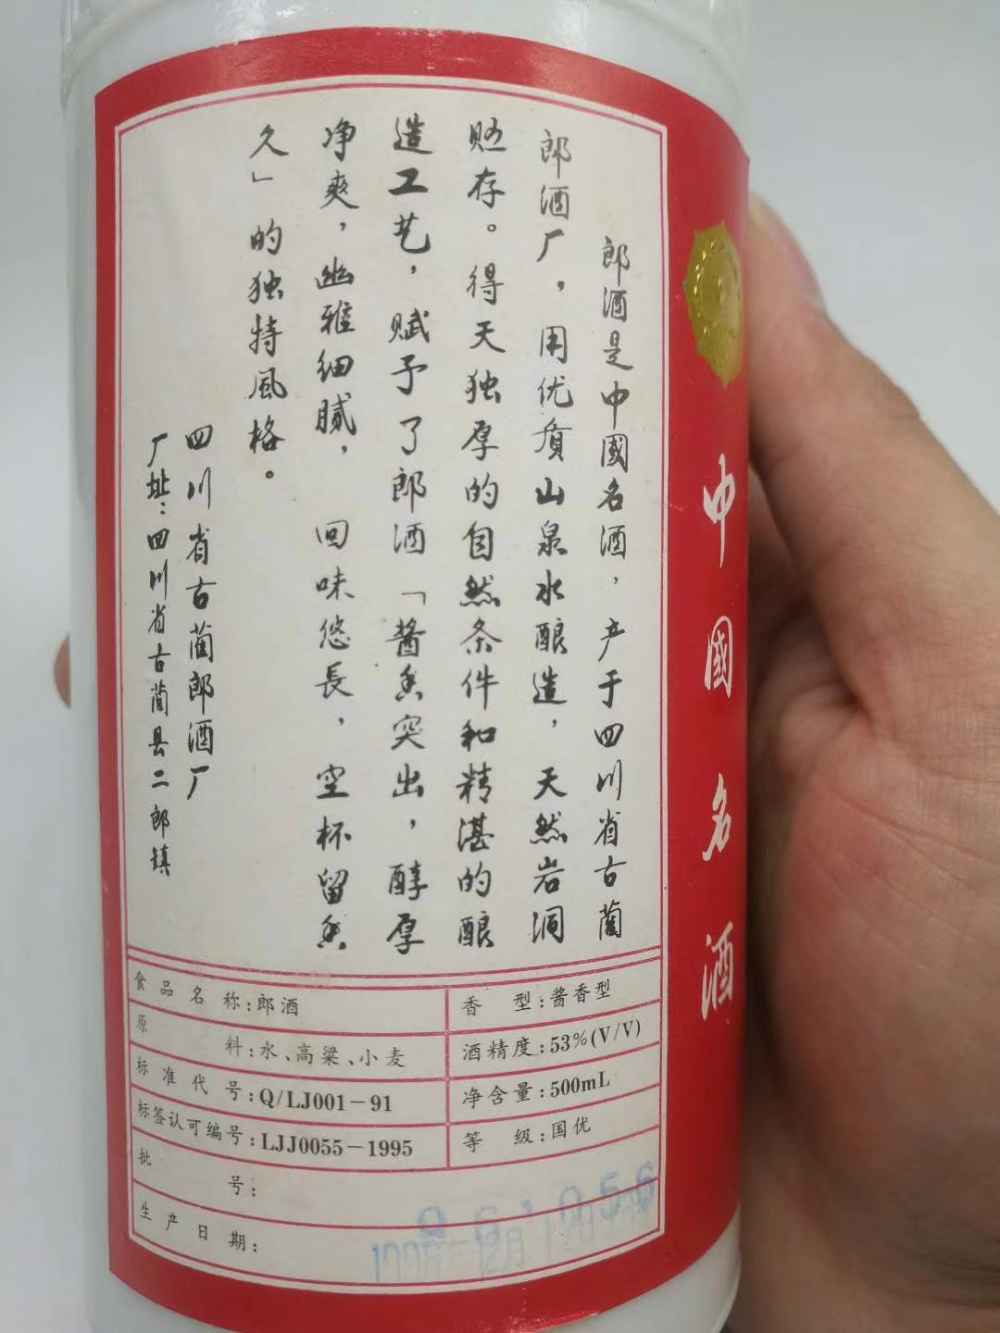 郎酒是中國名酒，产于四川省古蔺
郎酒厂，用优质山泉水酿造，天然岩洞
贮存。得天独厚的自然条件和精湛的酿
造工艺，赋予了郎酒「酱香突出，醇厚
净爽，幽雅细腻，回味悠長，空杯留香
久」的独特風格。
四川省古蔺郎酒厂
厂址：四川省古蔺县二郎镇
中國名酒
食品名称：郎酒
香型：酱香型
原料：水、高粱、小麦
酒精度：53%(V/V)
标准代号：Q/LJ001－91
净含量：500mL
标签认可编号：LJJ0055－1995
等级：国优
批号：
生产日期：